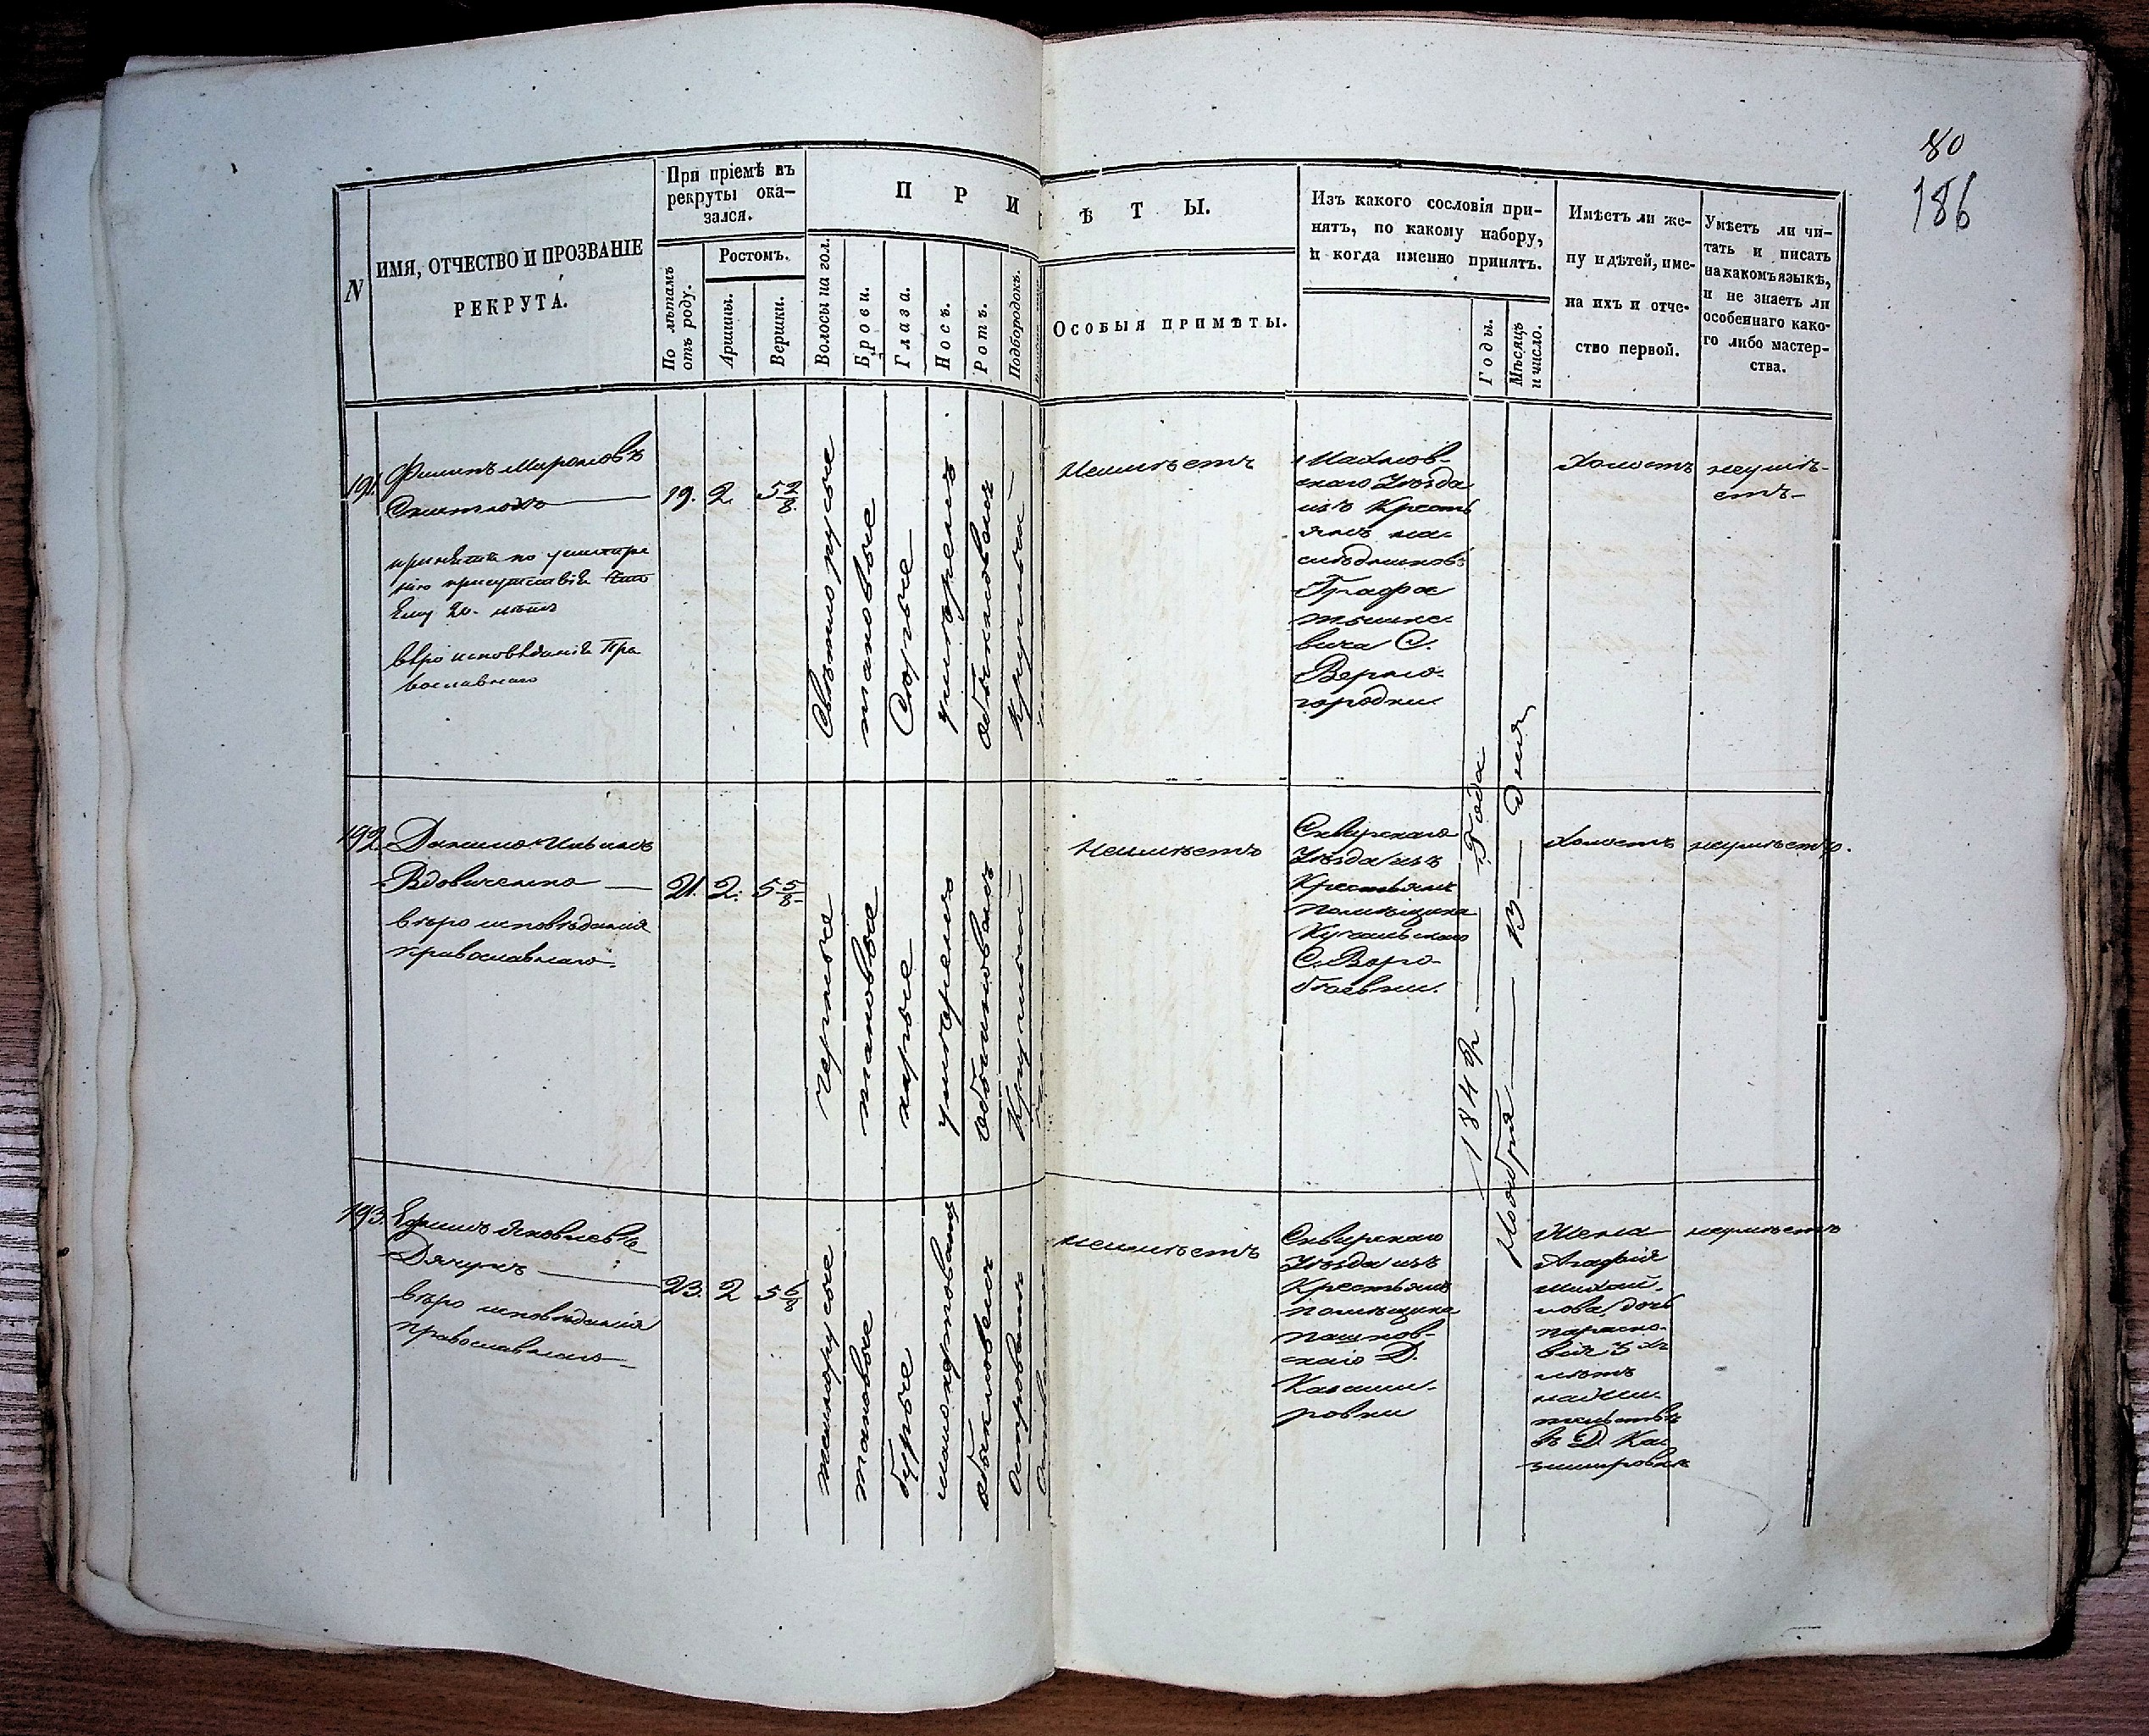 80
186
N
ИМЯ, ОТЧЕСТВО И ПРОЗВАНІЕ
РЕКРУТА.
При пріемѣ въ
рекруты ока-
зался.
По лѣтамъ
отъ роду.
Ростомъ.
Аршины.
Вершки.
П Р И
Волосы на гол.
Брови.
Глаза.
Носъ.
Ротъ.
Подбородокъ.
Ѣ Т Ы.
Особыя примѣты.
Изъ какого сословія при-
нятъ, по какому набору,
и когда именно принятъ.
Годы.
Мѣсяцъ
и число.
Имѣетъ ли же-
ну и дѣтей, име-
на ихъ и отче-
ство первой.
Умѣетъ ли чи-
тать и писать
на какомъ языкѣ,
и не знаетъ ли
особеннаго како-
го либо мастер-
ства.
191.
Филипъ Мироновъ
19. 2. 5 2/8
Ему 20. лѣтъ
вѣро исповѣданія Пра
вославнаго
Свѣтло русые
таковые
Сѣрые
умѣренъ
обыкновенъ
Круглый
Неимѣетъ
Махнов-
скаго Уѣзда
изъ Кресть
янъ на-
слѣдниковъ
Графа
Тышке-
вича С.
Верхо-
городки
Холостъ
неумѣ-
етъ
192.
Данило Ильинъ
Вдовиченко
вѣро исповѣданія
православнаго.
21. 2. 5 5/8
черные
таковые
карые
умѣренъ
обыкновенъ
Круглый
Неимѣетъ
Сквирскаго
Уѣзда изъ
Крестьянъ
помѣщика
С. Воро-
баевки.
184 Года
Ноября 13 дня
Холостъ
неумѣетъ.
193.
Ефимъ Яковлевъ
Дячукъ
вѣро исповѣданія
православнаго
23. 2 5 6/8
темнорусые
таковые
бурые
обыкновенъ
Неимѣетъ
Сквирскаго
Уѣзда изъ
Крестьянъ
помѣщика
Пашков-
скаго Д.
Казими-
ровки
Жена
Агафія
Михай-
лова, дочь
Параско-
вія 3 хъ
лѣтъ
жительствѣ
въ Д. Ка-
зимировкѣ
неумѣетъ